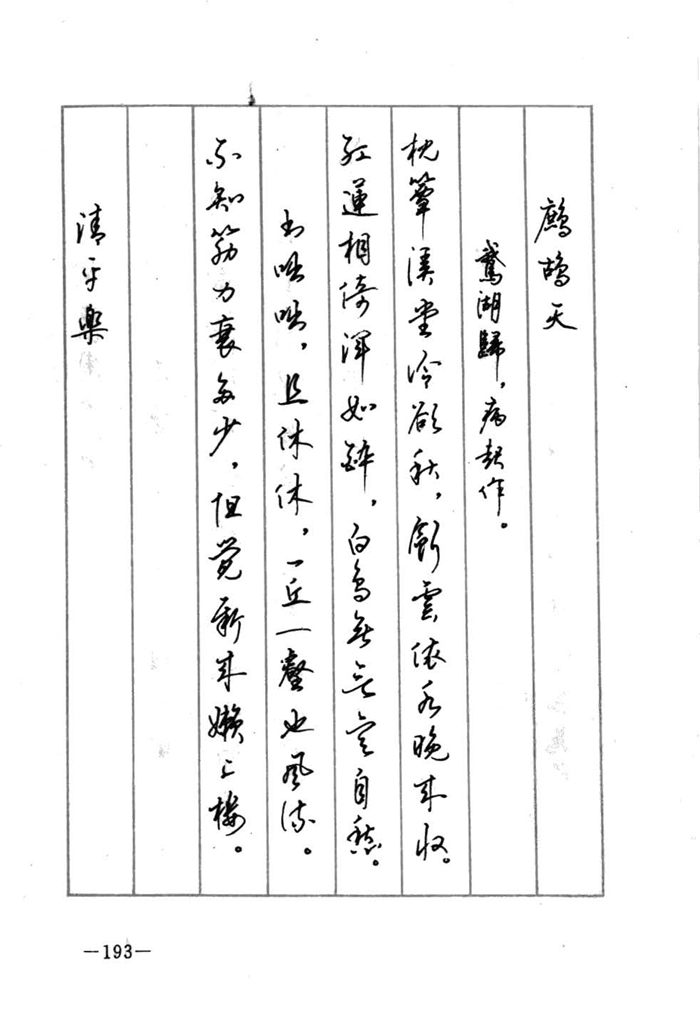 鷓鴣天
鵝湖歸，病起作。
枕簟溪堂冷欲秋，斷雲依水晚來收。
紅蓮相倚渾如醉，白鳥無言定自愁。
書咄咄，且休休，一丘一壑也風流。
不知筋力衰多少，但覺新來懶上樓。
清平樂
—193—